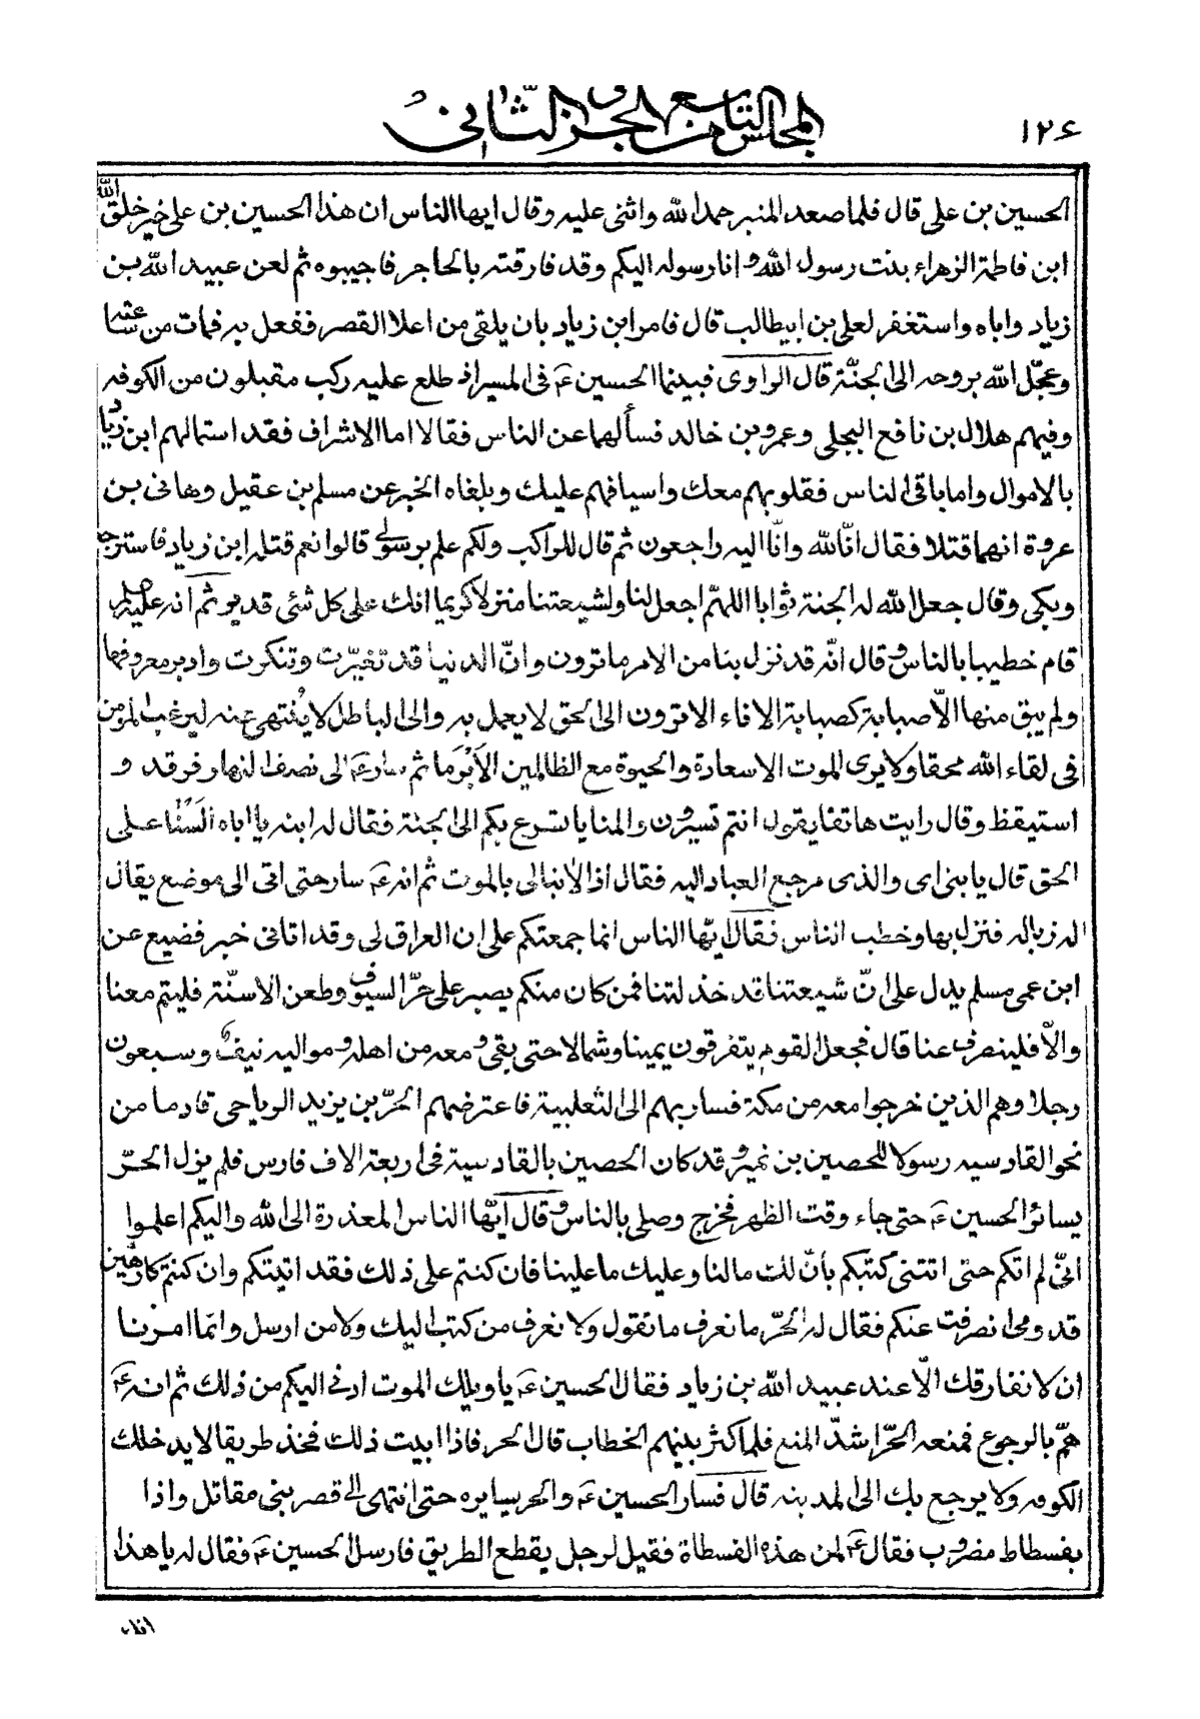 ١٢۶
المجلس التاسع من الجزء الثاني
الحسين بن علي قال فلما صعد المنبر حمد الله واثنى عليه وقال ايها الناس ان هذا الحسين بن علي خير خلق الله
ابن فاطمة الزهراء بنت رسول الله وانا رسوله اليكم وقد فارقته بالحاجر فاجيبوه ثم لعن عبيد الله بن
زياد واباه واستغفر لعلي بن ابيطالب قال فامر ابن زياد بان يلقى من اعلا القصر ففعل به فمات من
وعجّل الله بروحه الى الجنّة قال الراوى فبينما الحسين ع في المسير اذ طلع عليه ركب مقبلون من الكوفه
وفيهم هلال بن نافع البجلى وعمرو بن خالد فسألهما عن الناس فقالا اما الاشراف فقد استمالهم ابن زياد
بالاموال واما باقي الناس فقلوبهم معك واسيافهم عليك وبلغاه الخبر عن مسلم بن عقيل وهانى بن
عروة انهما قتلا فقال انّا لله وانّا اليه راجعون ثم قال للراكب ولكم علم برسولي قالوا نعم قتله ابن زياد فاسترجع
وبكى وقال جعل الله له الجنة ثوابا اللهمّ اجعل لنا ولشيعتنا منزلا كريما انك على كل شئ قدير ثم انه عليه
قام خطيبا بالناس وقال انّه قد نزل بنا من الامر ما ترون وانّ الدنيا قد تغيّرت وتنكرت وادبر معروفها
ولم يبق منها الّا صبابة كصبابة الاناء الا ترون الى الحق لا يعمل به والى الباطل لا يُنتهى عنه ليرغب المؤمن
في لقاء الله محقا ولا يرى الموت الا سعادة والحيوة مع الظالمين الّا بَرَما ثم سار ع الى نصف النهار فرقد و
استيقظ وقال رايت هاتفا يقول انتم تسيرون والمنايا تسرع بكم الى الجنة فقال له ابنه يا اباه السنا على
الحق قال يا بنى اى والذى مرجع العباد اليه فقال اذا لا نبالى بالموت ثم انه ع سار حتى اتى الى موضع يقال
له زباله فنزل بها وخطب الناس فقال ايّها الناس انما جمعتكم على ان العراق لى وقد اتانى خبر فضيع عن
ابن عمى مسلم يدل على انّ شيعتنا قد خذلتنا فمن كان منكم يصبر على حرّ السيوف وطعن الاسنّة فليتم معنا
والّا فلينصرف عنا قال فجعل القوم يتفرقون يمينا وشمالا حتى بقى معه من اهله ومواليه نيف وسبعون
رجلا وهم الذين خرجوا معه من مكة فسار بهم الى الثعلبية فاعترضهم الحرّ بن يزيد الرياحى قادما من
نحو القادسيه رسولا للحصين بن نمير وقد كان الحصين بالقادسية فى اربعة الاف فارس فلم يزل الحرّ
يسائر الحسين ع حتى جاء وقت الظهر فخرج وصلى بالناس وقال ايّها الناس المعذرة الى الله واليكم اعلموا
انّى لم اتكم حتى اتتنى كتبكم بأنّ لك ما لنا وعليك ما علينا فان كنتم على ذلك فقد اتيتكم وان كنتم كارهين
قدومى انصرفت عنكم فقال له الحرّ ما نعرف ما تقول ولا نعرف من كتب اليك ولا من ارسل وانما امرنا
ان لا نفارقك الّا عند عبيد الله بن زياد فقال الحسين ع يا ويلك الموت ادنى اليكم من ذلك ثم انه ع
همّ بالرجوع فمنعه الحرّ اشدّ المنع فلما كثر بينهم الخطاب قال الحر فاذا ابيت ذلك فخذ طريقا لا يدخلك
الكوفه ولا يرجع بك الى المدينه قال فسار الحسين ع والحر يسايره حتى انتهى الى قصر بنى مقاتل واذا
بفسطاط مضروب فقال ع لمن هذه الفسطاة فقيل لرجل يقطع الطريق فارسل الحسين ع فقال له يا هذا